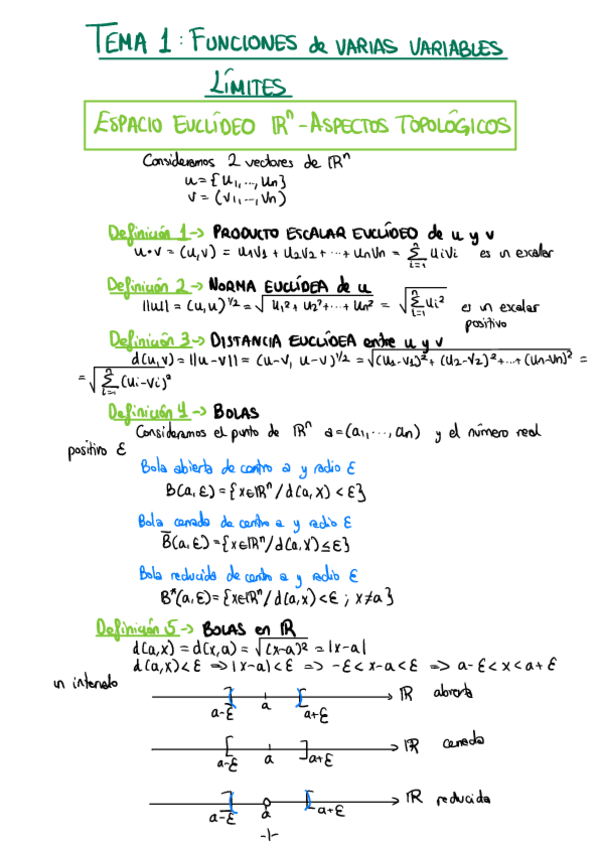 TEMA 1: FUNCIONES de VARIAS VARIABLES
LÍMITES
ESPACIO EUCLÍDEO ℝⁿ - ASPECTOS TOPOLÓGICOS
Consideramos 2 vectores de ℝⁿ
u = {u₁, ..., uₙ}
v = (v₁, ..., vₙ)
Definición 1 -> PRODUCTO ESCALAR EUCLÍDEO de u y v
u·v = (u,v) = u₁v₁ + u₂v₂ + ... + uₙvₙ = Σⁿᵢ₌₁ uᵢvᵢ es un escalar
Definición 2 -> NORMA EUCLÍDEA de u
||u|| = (u,u)^1/2 = √(u₁² + u₂² + ... + uₙ²) = √(Σⁿᵢ₌₁ uᵢ²) es un escalar
positivo
Definición 3 -> DISTANCIA EUCLÍDEA entre u y v
d(u,v) = ||u-v|| = (u-v, u-v)^1/2 = √((u₁-v₁)² + (u₂-v₂)² + ... + (uₙ-vₙ)²) =
= √(Σⁿᵢ₌₁ (uᵢ-vᵢ)²)
Definición 4 -> BOLAS
Consideramos el punto de ℝⁿ a = (a₁, ..., aₙ) y el número real
positivo ε
Bola abierta de centro a y radio ε
B(a, ε) = {x∈ℝⁿ / d(a, x) < ε}
Bola cerrada de centro a y radio ε
B̅(a, ε) = {x∈ℝⁿ / d(a, x) ≤ ε}
Bola reducida de centro a y radio ε
B*(a, ε) = {x∈ℝⁿ / d(a, x) < ε ; x≠a}
Definición 5 -> BOLAS en ℝ
d(a,x) = d(x,a) = √((x-a)²) = |x-a|
d(a,x) < ε => |x-a| < ε => -ε < x-a < ε => a-ε < x < a+ε
un intervalo
a-ε a a+ε ℝ abierta
a-ε a a+ε ℝ cerrada
a-ε a a+ε ℝ reducida
-1-